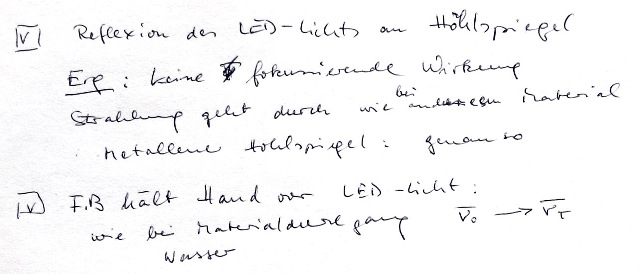 VI Reflexion des LED-Lichts an Hohlspiegel
Erg: keine fokussierende Wirkung
Strahlung geht durch wie bei anderem Material
Metallene Hohlspiegel: genauso
V F.B hält Hand vor LED-Licht:
wie bei Materialdurchgang v̅₀ → v̅ᴛ
Wasser